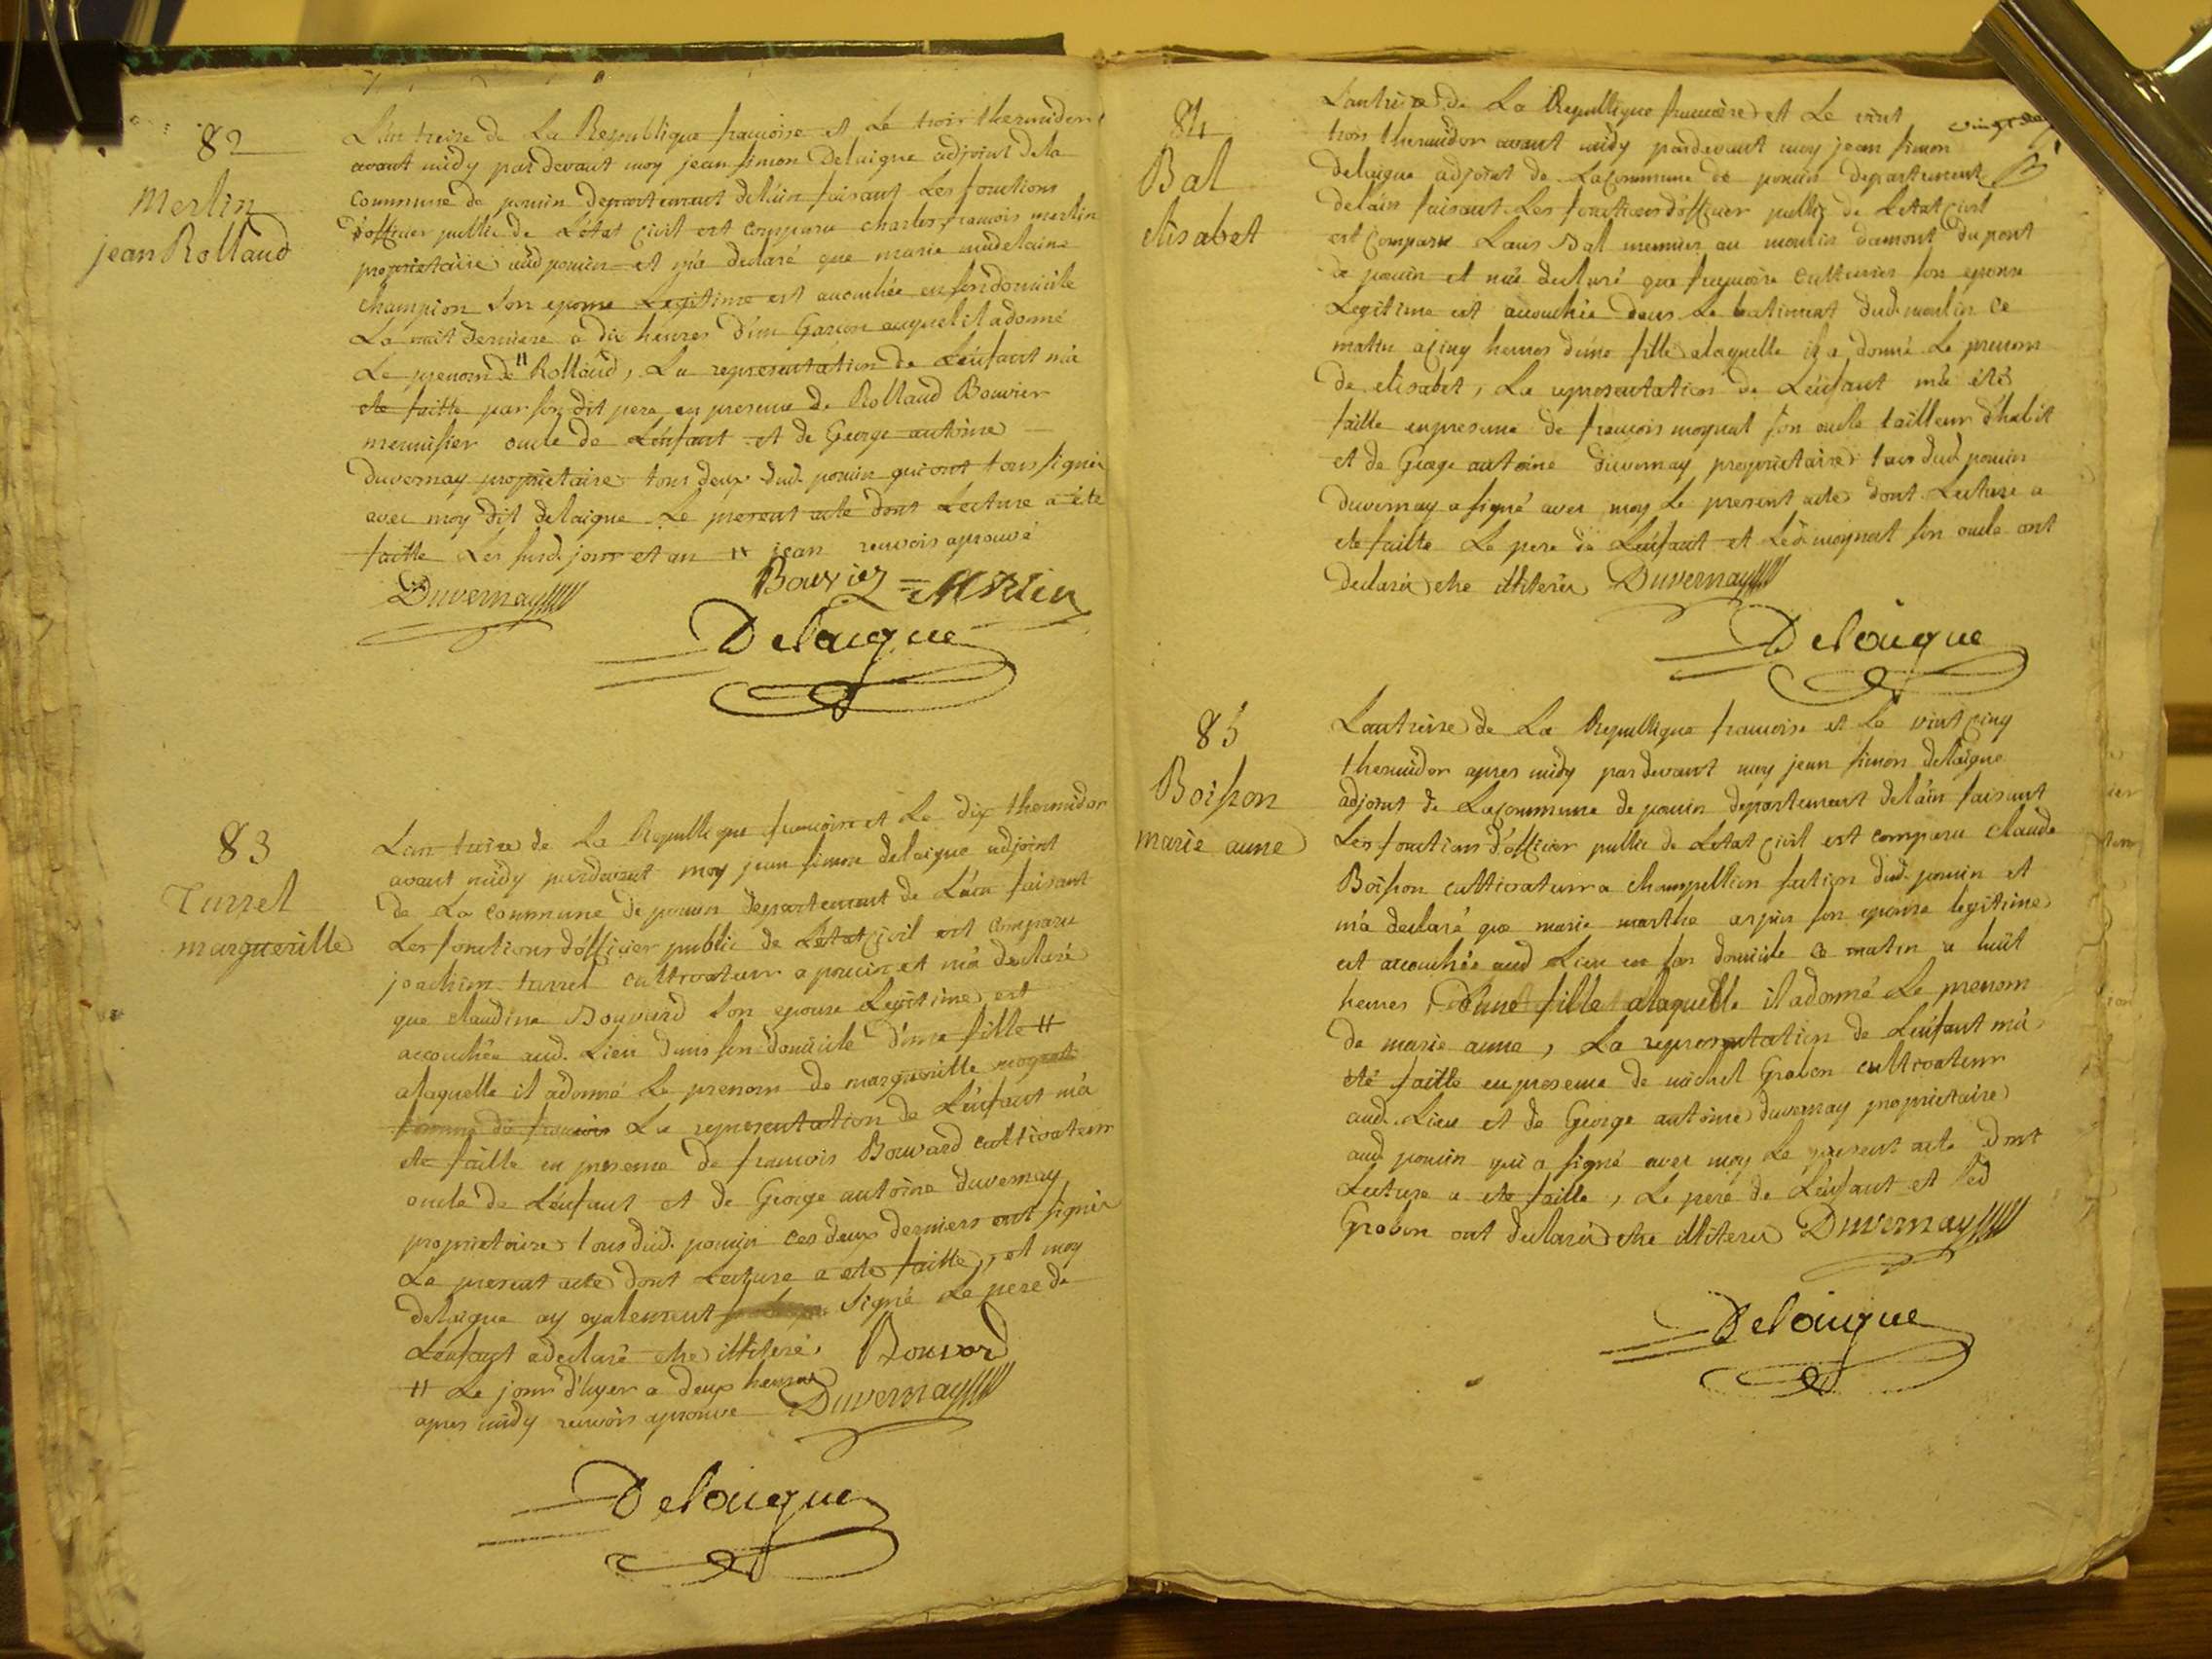 82
Merlin
jean Rolland
L'an treize de La Republique francoise et Le trois thermidor
avant midy pardevant moy jean simon Delaigue adjoint dela
Commune de poncin departement delain faisant Les fonctions
d'officier public de L'état civil est comparu charles francois merlin
proprietaire aud poncin et m'a declaré que marie madelaine
champion son epouse Legitime est accouchée en son domicile
La nuit derniere a dix heures d'un Garcon auquel il a donné
Le prenom de # Rolland, La representation de L'enfant m'a
ete faitte par son dit pere en presence de Rolland Bouvier
menuisier oncle de L'enfant et de George antoine
Duvernay proprietaire tous deux dud. poncin qui ont tous signés
avec moy dit delaigue Le present acte dont Lecture a été
faitte Les susd. jour et an # jean renvois aprouvé
Duvernay Bouvier = Merlin
Delaigue
83
Turrel
margueritte
Lan treize de La Republique francoise et Le dix thermidor
avant midy pardevant moy jean simon delaigue adjoint
de La commune de poncin departement de L'ain faisant
Les fonctions d'officier public de L'état civil est comparu
joachim turrel cultivateur a poncin et m'a declaré
que claudine Bouvard son epouse Legitime est
accouchée aud. Lieu dans son domicile d'une fille #
alaquelle il a donné Le prenom de margueritte
La representation de L'enfant m'a
ete faitte en presence de francois Bouvard cultivateur
oncle de L'enfant et de George antoine duvernay
proprietaire tous dud. poncin ces deux derniers ont signés
Le present acte dont Lecture a ete faitte, et moy
delaigue ay egalement signé Le pere de
L'enfant a declaré etre illiteré, Bouvard
# Le jour d'hyer a deux heures
apres midy renvois aprouvé Duvernay
Delaigue
84
Bal
elisabet
Lan treize de La Republique francoise et Le vint
trois thermidor avant midy pardevant moy jean simon
delaigue adjoint de La Commune de poncin departement
delain faisant Les fonctions d'officier public de Letat civil
est comparu Louis Bal meunier au moulin damont du pont
de poncin et m'a declaré que francoise son epouse
Legitime est accouchée dans Le batiment dud. moulin ce
matin a cinq heures d'une fille alaquelle il a donné Le prenom
de elisabet, La representation de L'enfant m'a été
faitte en presence de francois moynat son oncle tailleur d'habit
et de George antoine duvernay proprietaire tous dud. poncin
duvernay a signé avec moy Le present acte dont Lecture a
ete faitte Le pere de L'enfant et Led. moynat son oncle ont
declarés etre illiterés Duvernay
Delaigue
85
Boisson
marie anne
Lan treize de La Republique francoise et Le vint cinq
thermidor apres midy pardevant moy jean simon delaigue
adjoint de La commune de poncin departement delain faisant
Les fonctions d'officier public de Letat civil est comparu claude
Boisson cultivateur a champeillon section dud. poncin et
m'a declaré que marie marthe son epouse legitime
est accouchée aud Lieu en son domicile ce matin a huit
heures d'une fille alaquelle il a donné Le prenom
de marie anne, La representation de L'enfant m'a
été faitte en presence de michel Grobon cultivateur
aud. Lieu et de George antoine duvernay proprietaire
aud poncin qui a signé avec moy Le present acte dont
Lecture a ete faitte, Le pere de L'enfant et led
Grobon ont declarés etre illiterés Duvernay
Delaigue